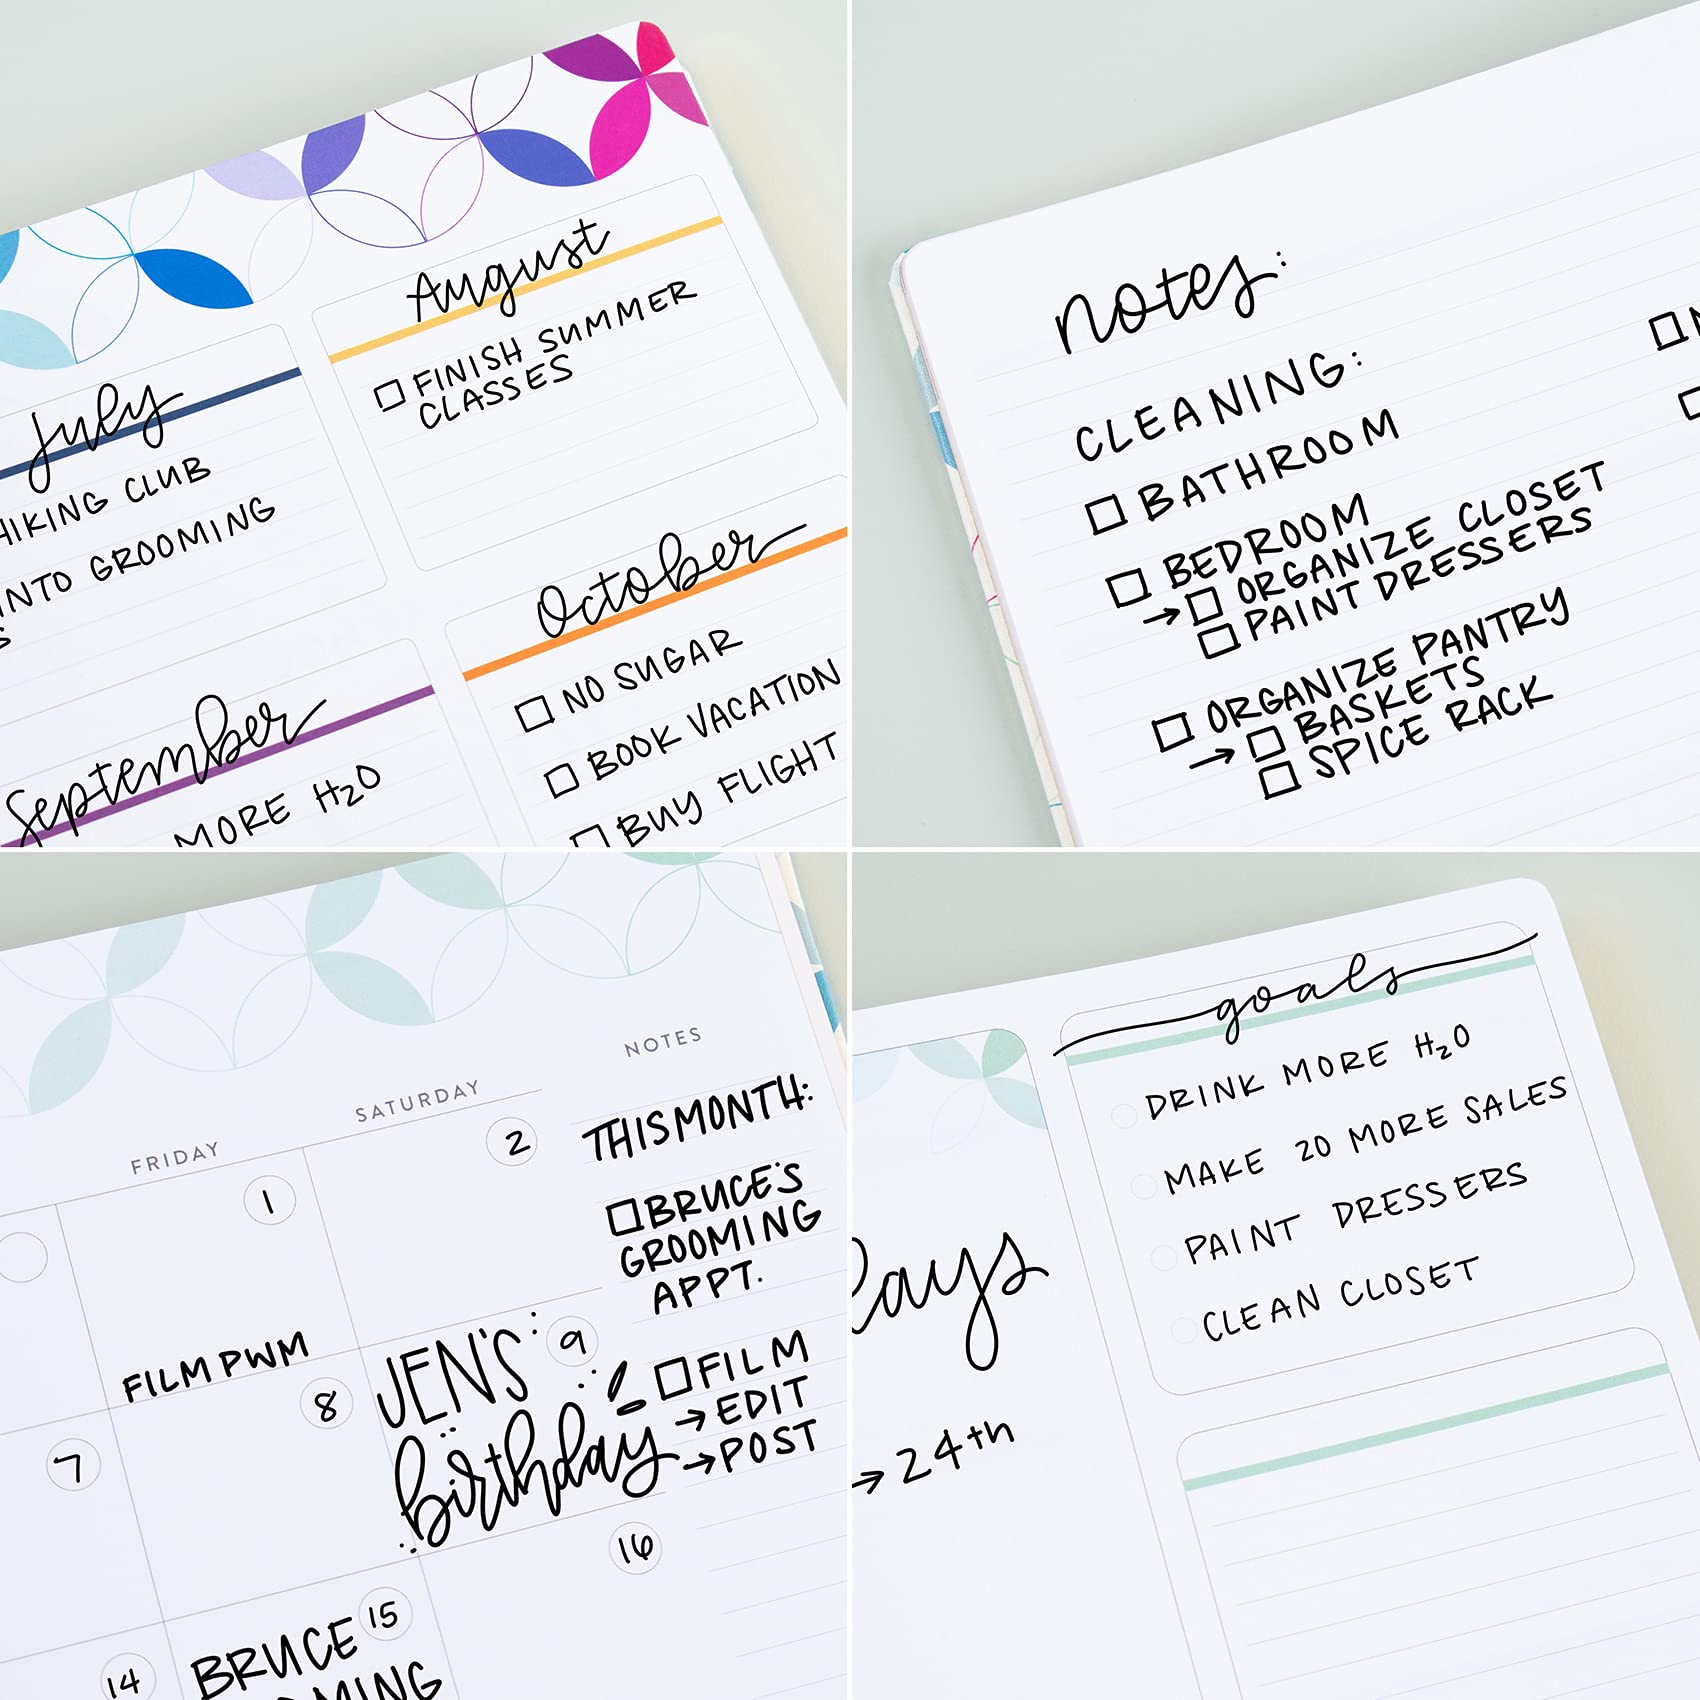 August
FINISH SUMMER
CLASSES
July
HIKING CLUB
INTO GROOMING
October
NO SUGAR
BOOK VACATION
BUY FLIGHT
September
MORE H2O
notes:
CLEANING:
BATHROOM
BEDROOM
→ ORGANIZE CLOSET
PAINT DRESSERS
ORGANIZE PANTRY
→ BASKETS
SPICE RACK
NOTES
SATURDAY
FRIDAY
1
2
THIS MONTH:
BRUCE'S
GROOMING
APPT.
FILM PWM
7
8
JEN'S
birthday
9
FILM
→ EDIT
→ POST
14
BRUCE
15
16
goals
DRINK MORE H2O
MAKE 20 MORE SALES
PAINT DRESSERS
CLEAN CLOSET
→ 24th